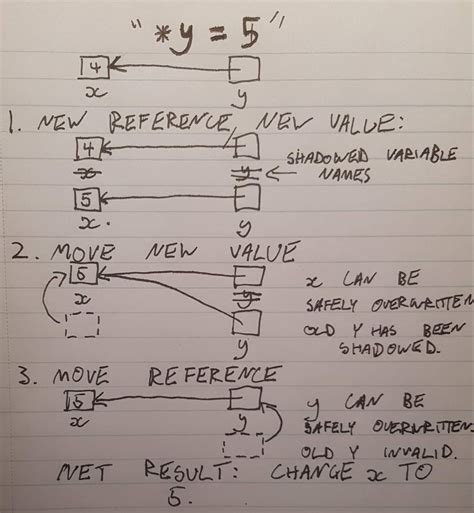 " *y = 5 "
4
x y
1. NEW REFERENCE NEW VALUE:
4
x y SHADOWED VARIABLE
NAMES
5
x. y
2. MOVE NEW VALUE
5
x y
y
x CAN BE
SAFELY OVERWRITTEN
OLD Y HAS BEEN
SHADOWED.
3. MOVE REFERENCE
5
x y
y CAN BE
SAFELY OVERWRITTEN.
OLD Y INVALID.
NET RESULT: CHANGE x TO
5.